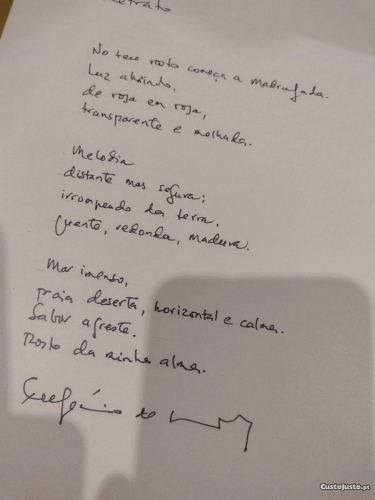 Retrato
No teu rosto começa a madrugada.
Luz abrindo,
de rosa em rosa,
transparente e molhada.
Melodia
distante mas segura;
irrompendo da terra,
quente, redonda, madura.
Mar imenso,
praia deserta, horizontal e calma.
Sabor agreste.
Rosto da minha alma.
Eugénio de Andrade
CustoJusto.pt